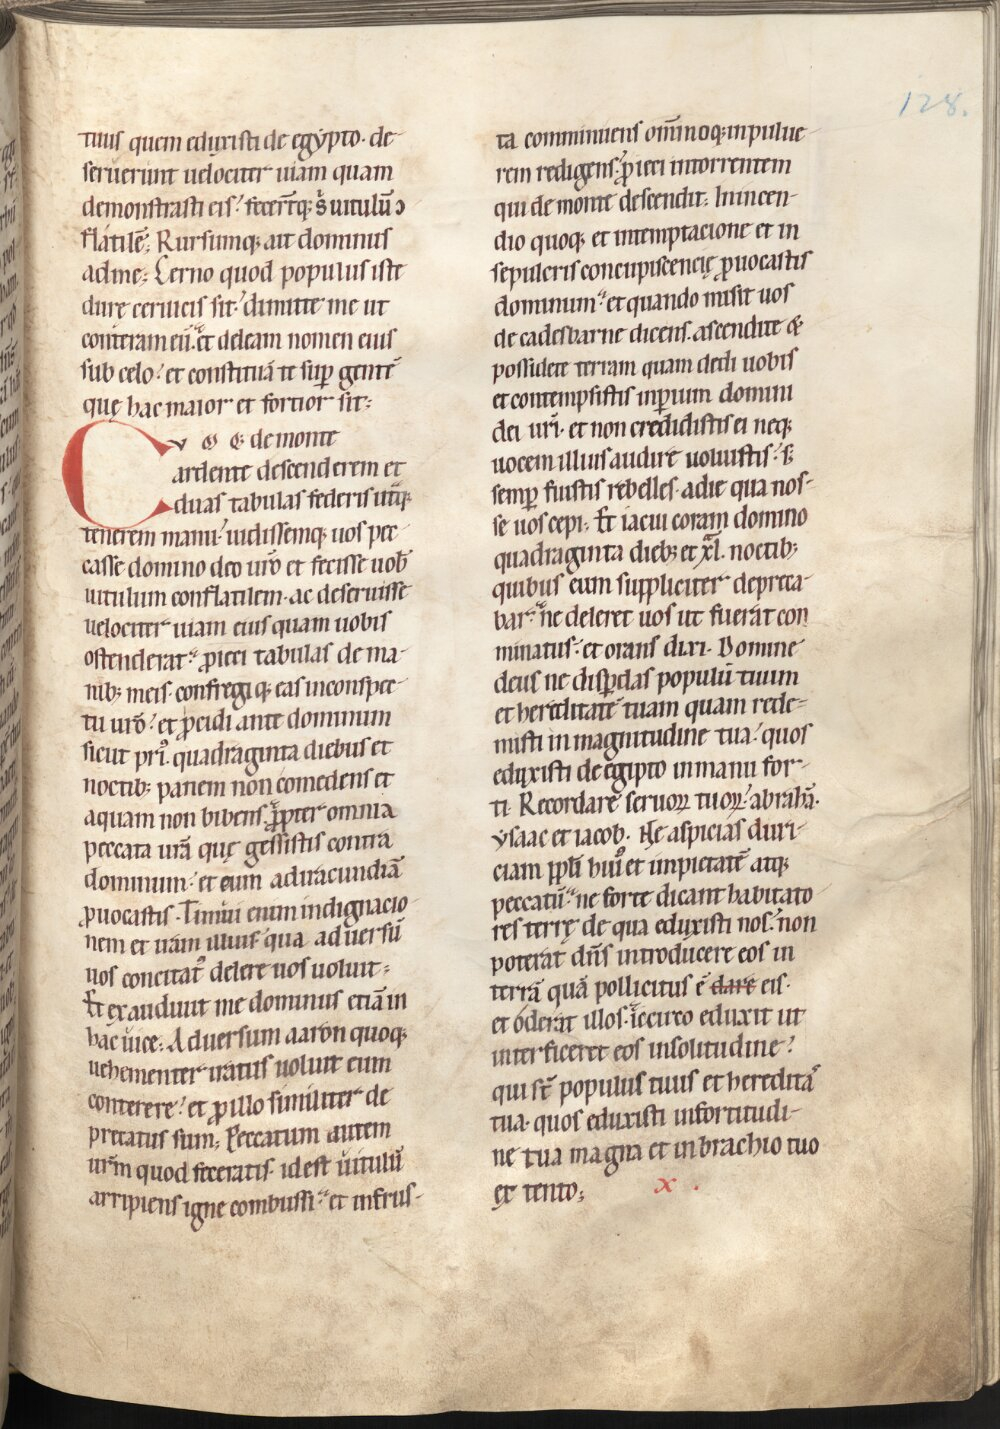 128.
tuus quem eduxisti de egypto. de-
seruerunt uelociter uiam quam
demonstrasti eis. fecerūtq; s uitulū ↄ
flatilē; Rursumq; ait dominus
ad me; Cerno quod populus iste
dure ceruicis sit. dimitte me ut
conteram eū. et deleam nomen eius
sub celo. et constituā te sup gentē
quę hac maior et fortior sit;
CVQE de monte
ardente descenderem et
duas tabulas federis utrāq;
tenerem manu. uidissemq; uos pec-
casse domino deo uro et fecisse uob
uitulum conflatilem. ac deseruisse
uelociter uiam eius quam uobis
ostenderat. pieci tabulas de ma-
nib; meis. confregiq; eas in conspec-
tu uro. et pcidi ante dominum
sicut pri. quadraginta diebus et
noctib; panem non comedens et
aquam non bibens. ppter omnia
peccata urā quę gessistis contra
dominum. et eum ad iracundiā
puocastis. Timui enim indignacio-
nem et irām illius. qua aduersū
uos concitat delere uos uoluit;
Et exaudiuit me dominus etiā in
hac uice. Aduersum aaron quoq;
uehementer iratus uoluit eum
conterere. et p illo similiter de
precatus sum; Peccatum autem
urm quod feceratis. id est uitulū
arripiens igne combussi. et in frus-
ta comminuens omninoq; in pulue-
rem redigens. pieci in torrentem
qui de monte descendit. In incen-
dio quoq; et in temptacione et in
sepulcris concupiscencię puocastis
dominum. et quando misit uos
de cadesbarne dicens. ascendite &
possidete terram quam dedi uobis
et contempsistis inpium domini
dei uri. et non credidistis ei neq;
uocem illius audire uoluistis. s;
semp fuistis rebelles. a die qua nos-
se uos cepi. Et iacui coram domino
quadraginta dieb; et xl. noctib;
quibus eum suppliciter depreca-
bar. ne deleret uos ut fuerat con
minatus. et orans dixi. Domine
deus ne dispdas populū tuum
et hereditatē tuam quam rede-
misti in magnitudine tua. quos
eduxisti de egipto in manu for-
ti. Recordare seruoꝝ tuoꝝ. abrahā.
ysaac et iacob. Ne aspicias duri-
ciam ppli huiꝰ et inpietatē atq;
peccatū. ne forte dicant habitato
res terrę de qua eduxisti nos. non
poterat dn̄s introducere eos in
terrā quā pollicitus ē dare eis.
et oderat illos. iccirco eduxit ut
interficeret eos in solitudine.
qui st̄ populus tuus et hereditā
tua. quos eduxisti in fortitudi-
ne tua magna et in brachio tuo
extento; x .